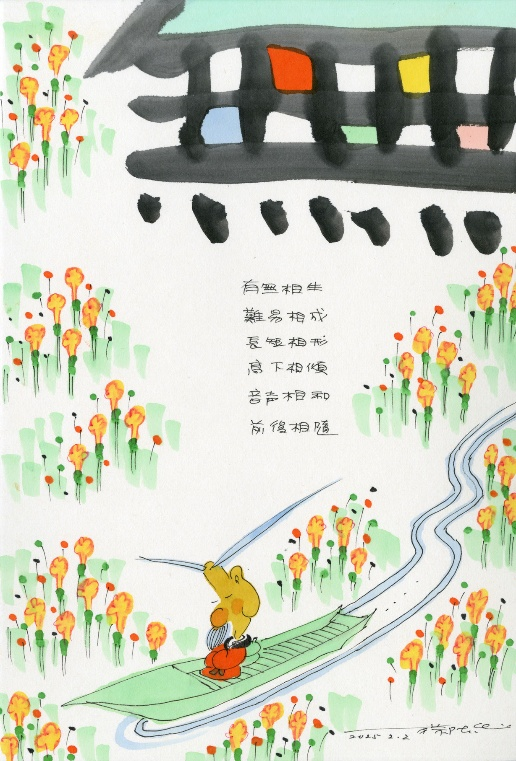 有無相生
難易相成
長短相形
高下相傾
音声相和
前後相隨
2025 2.2